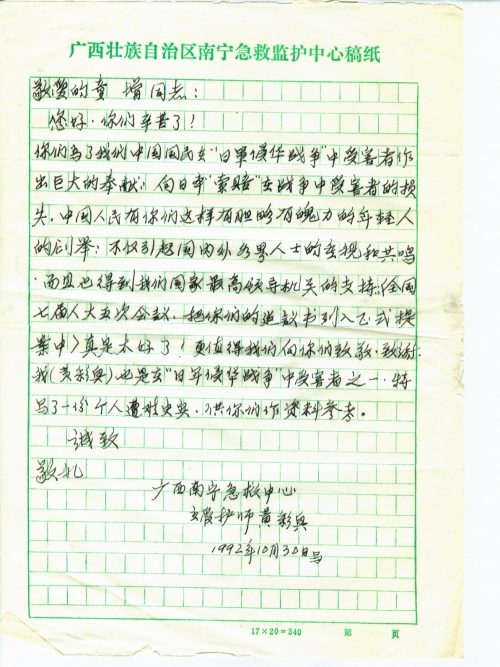 广西壮族自治区南宁急救监护中心稿纸
敬爱的童增同志：
您好·你们辛苦了！
你们为了我们中国国民在"日军侵华战争"中受害者作
出巨大的奉献；向日本"索赔"在战争中受害者的损
失，中国人民有你们这样有胆略有魄力的年轻人
的创举；不仅引起国内外各界人士的重视和共鸣
·而且也得到我们国家最高领导机关的支持（全国
七届人大五次会议，把你们的建议书列入正式提
案中）真是太好了！更值得我们向你们致敬·致谢。
我（黄彩兴）也是在"日军侵华战争"中受害者之一·特
写了一份个人遭难史实，供你们作资料参考。
诚致
敬礼
广西南宁急救中心
护师黄彩兴
1992年10月30日写
17×20=340 第 页